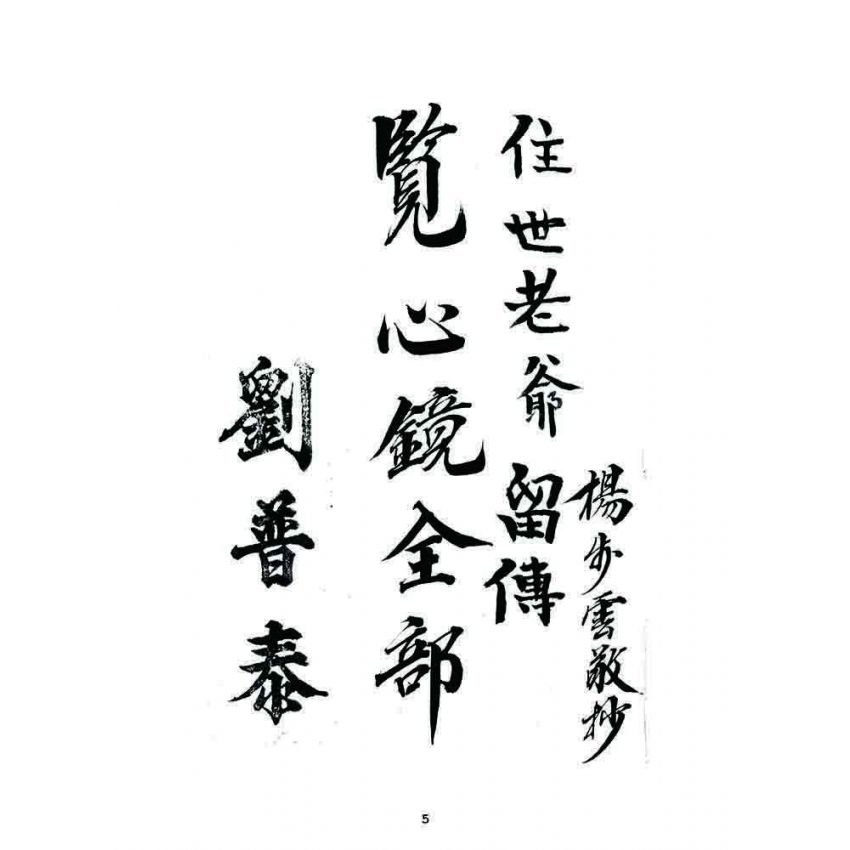 楊步雲敬抄
住世老爺留傳
覽心鏡全部
劉普泰
5